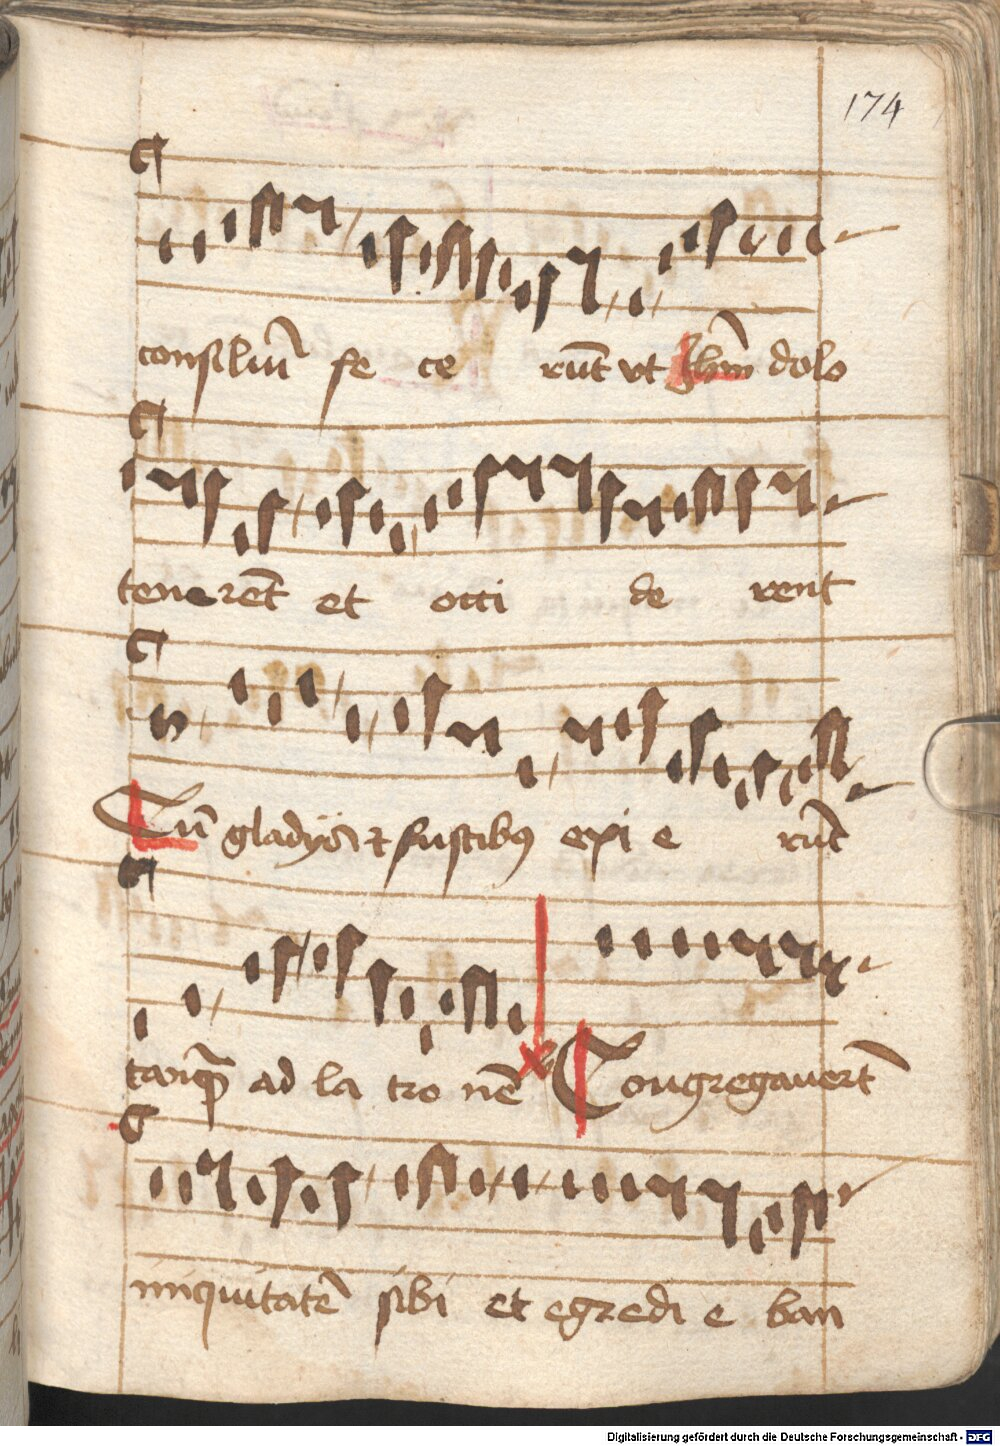 174
consiliū fe ce rūt vt Ihm̄ dolo
tenerēt et occi de rent
Cū gladijs ⁊ fustibꝯ exi e rūt
tanq̄ ad la tro nē Congregauerūt
iniquitatē sibi et egredi e ban
Digitalisierung gefördert durch die Deutsche Forschungsgemeinschaft - DFG